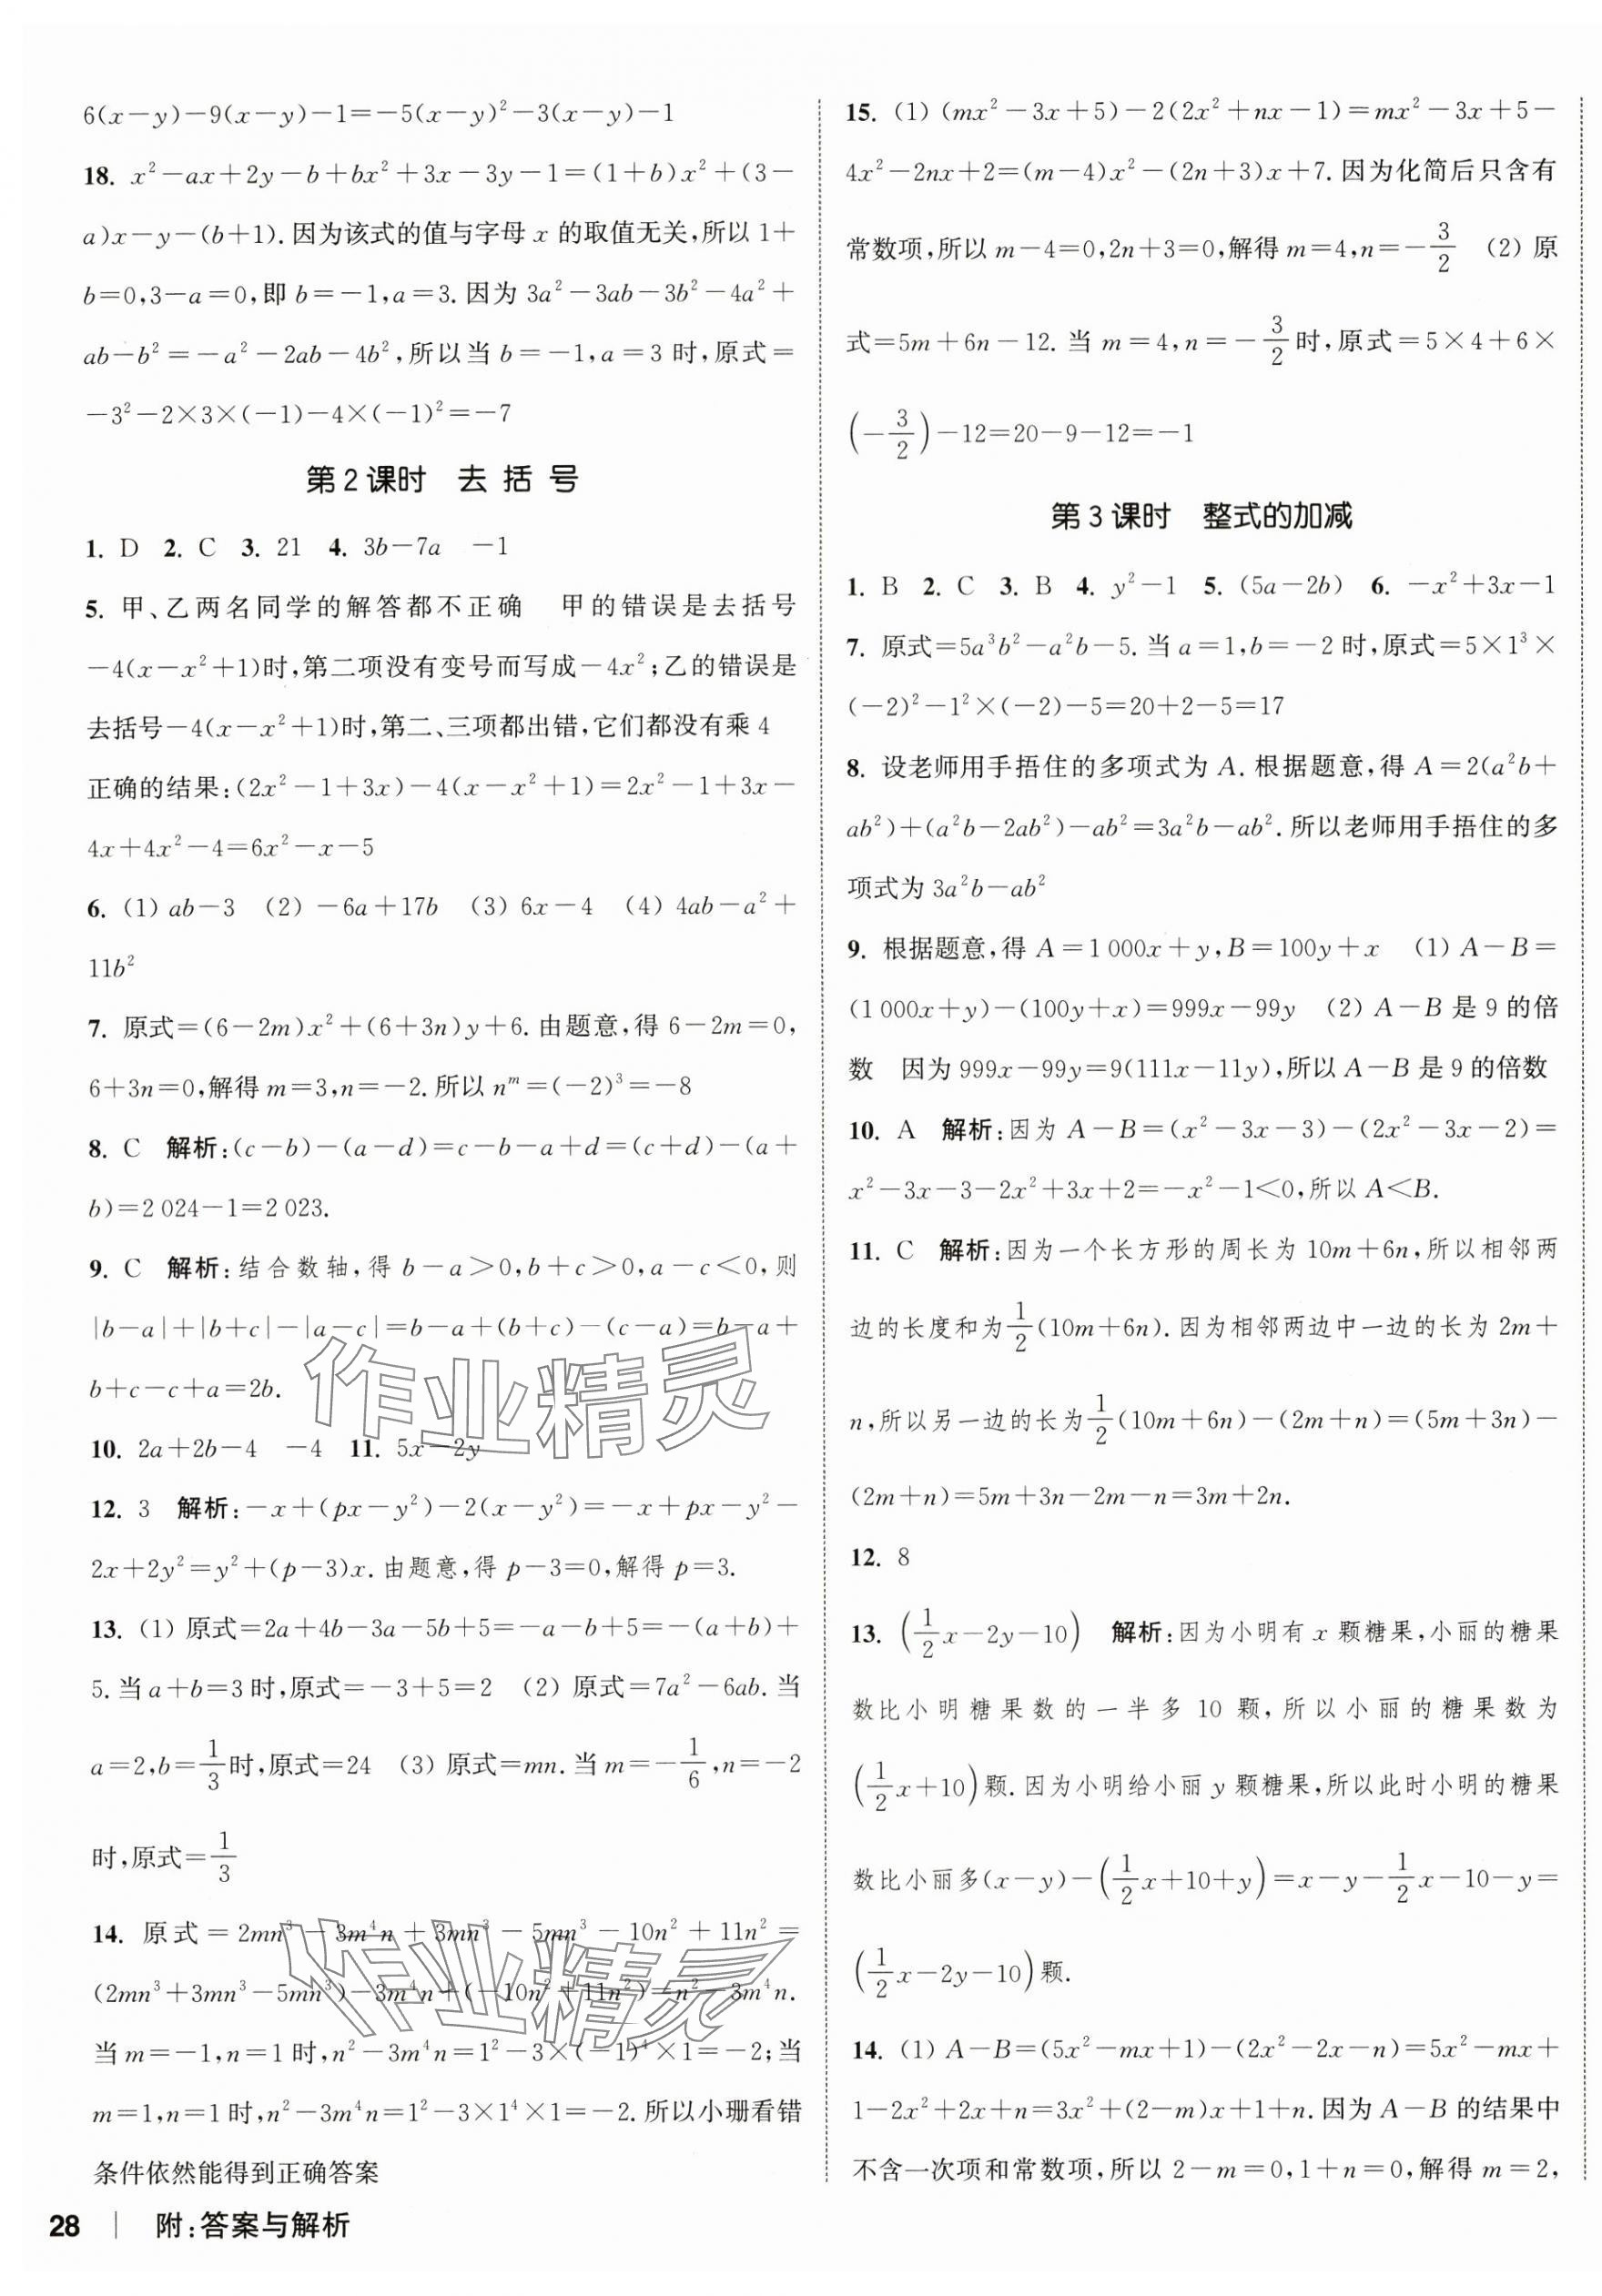 6(x−y)−9(x−y)−1=−5(x−y)²−3(x−y)−1
18. x²−ax+2y−b+bx²+3x−3y−1=(1+b)x²+(3−
a)x−y−(b+1).因为该式的值与字母 x 的取值无关,所以 1+
b=0,3−a=0,即 b=−1,a=3.因为 3a²−3ab−3b²−4a²+
ab−b²=−a²−2ab−4b²,所以当 b=−1,a=3 时,原式=
−3²−2×3×(−1)−4×(−1)²=−7
第 2 课时 去 括 号
1. D 2. C 3. 21 4. 3b−7a −1
5. 甲、乙两名同学的解答都不正确 甲的错误是去括号
−4(x−x²+1)时,第二项没有变号而写成−4x²;乙的错误是
去括号−4(x−x²+1)时,第二、三项都出错,它们都没有乘 4
正确的结果:(2x²−1+3x)−4(x−x²+1)=2x²−1+3x−
4x+4x²−4=6x²−x−5
6. (1) ab−3 (2) −6a+17b (3) 6x−4 (4) 4ab−a²+
11b²
7. 原式=(6−2m)x²+(6+3n)y+6.由题意,得 6−2m=0,
6+3n=0,解得 m=3,n=−2.所以 nᵐ=(−2)³=−8
8. C 解析:(c−b)−(a−d)=c−b−a+d=(c+d)−(a+
b)=2 024−1=2 023.
9. C 解析:结合数轴,得 b−a>0,b+c>0,a−c<0,则
|b−a|+|b+c|−|a−c|=b−a+(b+c)−(c−a)=b−a+
b+c−c+a=2b.
10. 2a+2b−4 −4 11. 5x−2y
12. 3 解析:−x+(px−y²)−2(x−y²)=−x+px−y²−
2x+2y²=y²+(p−3)x.由题意,得 p−3=0,解得 p=3.
13. (1) 原式=2a+4b−3a−5b+5=−a−b+5=−(a+b)+
5.当 a+b=3 时,原式=−3+5=2 (2) 原式=7a²−6ab.当
a=2,b=1/3时,原式=24 (3) 原式=mn.当 m=−1/6,n=−2
时,原式=1/3
14. 原式=2mn³−3m⁴n+3mn³−5mn³−10n²+11n²=
(2mn³+3mn³−5mn³)−3m⁴n+(−10n²+11n²)=n²−3m⁴n.
当 m=−1,n=1 时,n²−3m⁴n=1²−3×(−1)⁴×1=−2;当
m=1,n=1 时,n²−3m⁴n=1²−3×1⁴×1=−2.所以小珊看错
条件依然能得到正确答案
28 | 附:答案与解析
15. (1) (mx²−3x+5)−2(2x²+nx−1)=mx²−3x+5−
4x²−2nx+2=(m−4)x²−(2n+3)x+7.因为化简后只含有
常数项,所以 m−4=0,2n+3=0,解得 m=4,n=−3/2 (2) 原
式=5m+6n−12.当 m=4,n=−3/2时,原式=5×4+6×
(−3/2)−12=20−9−12=−1
第 3 课时 整式的加减
1. B 2. C 3. B 4. y²−1 5. (5a−2b) 6. −x²+3x−1
7. 原式=5a³b²−a²b−5.当 a=1,b=−2 时,原式=5×1³×
(−2)²−1²×(−2)−5=20+2−5=17
8. 设老师用手捂住的多项式为 A.根据题意,得 A=2(a²b+
ab²)+(a²b−2ab²)−ab²=3a²b−ab².所以老师用手捂住的多
项式为 3a²b−ab²
9. 根据题意,得 A=1 000x+y,B=100y+x (1) A−B=
(1 000x+y)−(100y+x)=999x−99y (2) A−B 是 9 的倍
数 因为 999x−99y=9(111x−11y),所以 A−B 是 9 的倍数
10. A 解析:因为 A−B=(x²−3x−3)−(2x²−3x−2)=
x²−3x−3−2x²+3x+2=−x²−1<0,所以 A<B.
11. C 解析:因为一个长方形的周长为 10m+6n,所以相邻两
边的长度和为1/2(10m+6n).因为相邻两边中一边的长为 2m+
n,所以另一边的长为1/2(10m+6n)−(2m+n)=(5m+3n)−
(2m+n)=5m+3n−2m−n=3m+2n.
12. 8
13. (1/2x−2y−10) 解析:因为小明有 x 颗糖果,小丽的糖果
数比小明糖果数的一半多 10 颗,所以小丽的糖果数为
(1/2x+10)颗.因为小明给小丽 y 颗糖果,所以此时小明的糖果
数比小丽多(x−y)−(1/2x+10+y)=x−y−1/2x−10−y=
(1/2x−2y−10)颗.
14. (1) A−B=(5x²−mx+1)−(2x²−2x−n)=5x²−mx+
1−2x²+2x+n=3x²+(2−m)x+1+n.因为 A−B 的结果中
不含一次项和常数项,所以 2−m=0,1+n=0,解得 m=2,
作业精灵
作业精灵